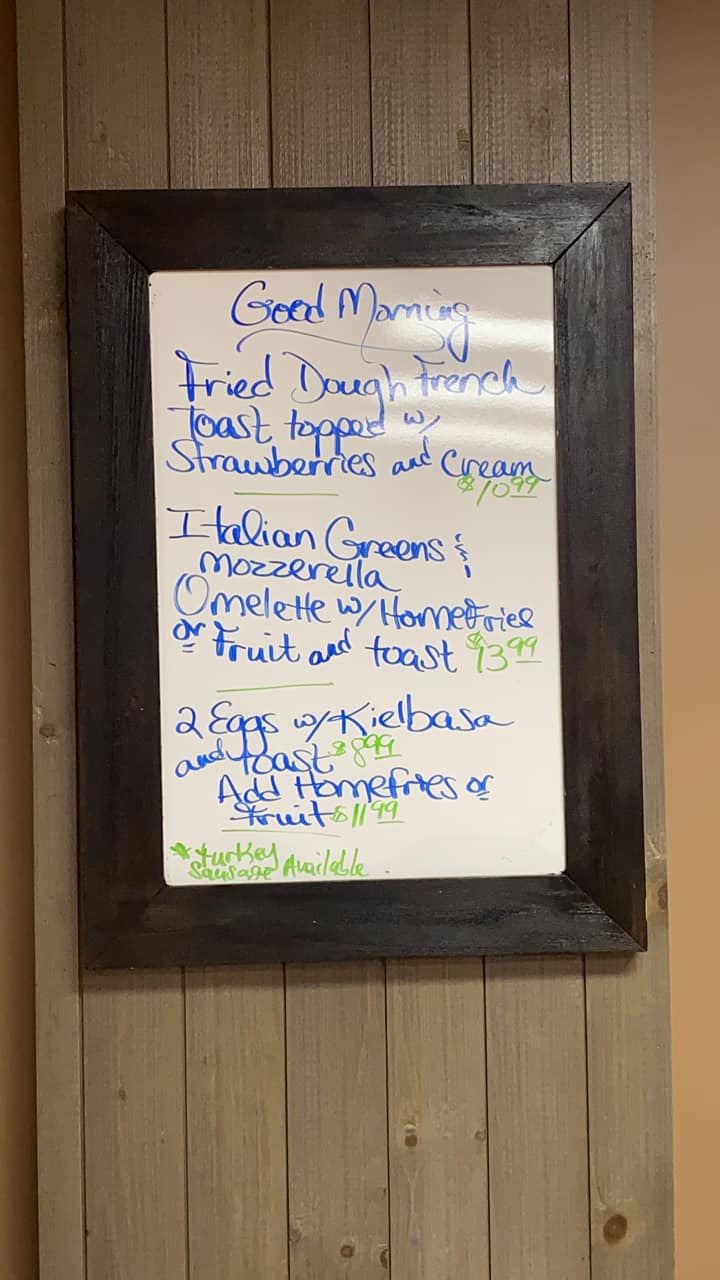 Good Morning
Fried Dough French
Toast topped w/
Strawberries and Cream
$10.99
Italian Greens &
mozzerella
Omelette w/HomeFries
or Fruit and toast $13.99
2 Eggs w/Kielbasa
and toast $8.99
Add Homefries or
Fruit $11.99
* turkey
Sausage Available